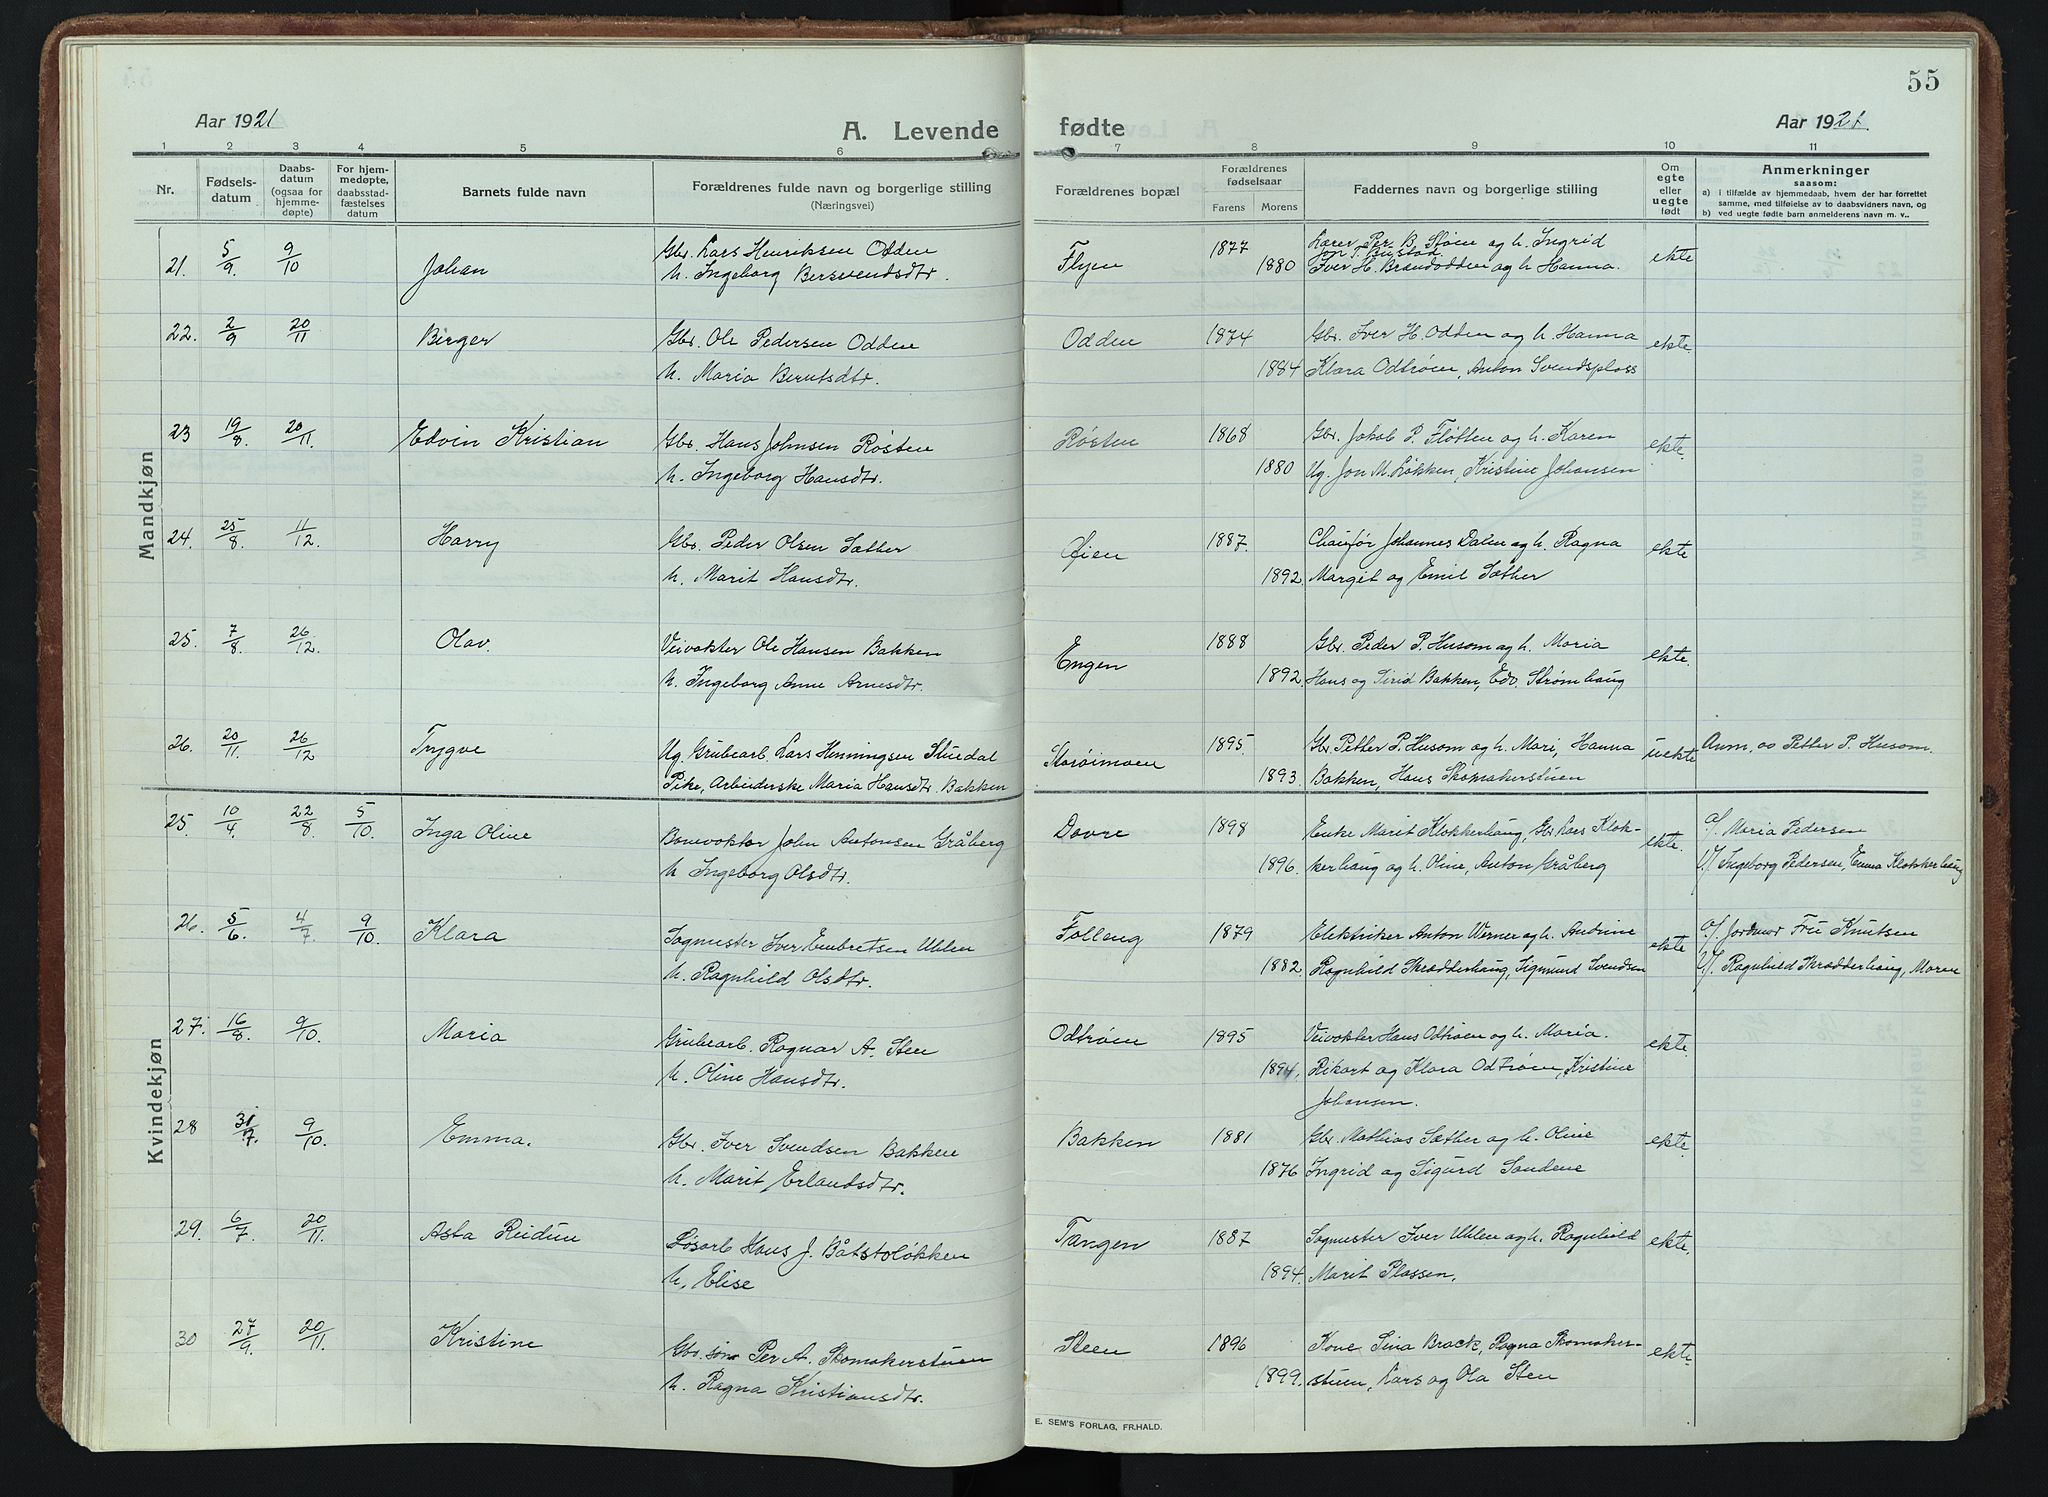 55
Aar 1921
A. Levende fødte
Aar 1921.
1 2 3 4 5 6 7 8 9 10 11
Nr.
Fødsels-
datum
Daabs-
datum
(ogsaa for
hjemme-
døpte)
For hjem-
medøpte,
daabsstad-
fæstelses
datum
Barnets fulde navn
Forældrenes fulde navn og borgerlige stilling
(Næringsvei)
Forældrenes bopæl
Forældrenes
fødselsaar
Farens Morens
Faddernes navn og borgerlige stilling
Om
egte
eller
uegte
født
Anmerkninger
saasom:
a) i tilfælde av hjemmedaab, hvem der har forrettet
samme, med tilføielse av to daabsvidners navn, og
b) ved uegte fødte barn anmelderens navn m. v..
Mandkjøn
21. 5/9 9/10 Johan Gbr. Lars Henriksen Odden Flyen 1877 Lærer Per B. Støen og h. Ingrid ekte
Jon T. Bustad
h. Ingeborg Bersvendsdtr. 1880 Iver H. Brandodden og h. Hanna.
22. 2/9 20/11 Birger Gbr. Ole Pedersen Odden Odden 1874 Gbr. Iver H. Odden og h. Hanna ekte.
h. Maria Berntsdtr. 1884 Klara Odtrøen, Anton Svendsplass
23 19/8 20/11. Edvin Kristian Gbr. Hans Johnsen Røsten Røsten 1868 Gbr. Jakob P. Fløtten og h. Karen ekte.
h. Ingeborg Hansdtr. 1880 Ug. Jon M. Løkken, Kristine Johansen
24. 25/8. 11/12. Harry Gbr. Peder Olsen Sæther Øien 1887. Chaufør Johannes Dalen og h. Ragna ekte
h. Marit Hansdtr. 1892. Margit og Emil Sæther
25. 7/8. 26/12. Olav. Veivokter Ole Hansen Bakken Engen 1888 Gbr. Peder P. Husom og h. Maria ekte.
h. Ingeborg Anne Arnesdtr. 1892. Hans og Sirid Bakken, Edv. Strømhaug
26. 20/11. 26/12 Trygve Ug. Grubearb. Lars Henningsen Stuedal Storøimoen 1895. Gbr. Petter P. Husom og h. Mari, Hanna uekte Anm. av Petter P. Husom.
Pike, Arbeiderske Maria Hansdtr. Bakken 1893. Bakken, Hans Skomakerstuen
Kvindekjøn
25. 10/4 22/8 5/10. Inga Oline Banevokter John Antonsen Gråberg Dovre 1898 Enke Marit Klokkerhaug, Gbr. Lars Klok- ekte. a/. Maria Pedersen
h Ingeborg Olsdtr. 1896. kerhaug og h. Oline, Anton Gråberg b/. Ingeborg Pedersen, Emma Klokkerhaug
26. 5/6. 4/7 9/10. Klara Sagmester Iver Embretsen Uhlen Folleng 1879 Elektriker Anton Werner og h. Andrine ekte a/. Jordmor Fru Knutsen
h. Ragnhild Olsdtr. 1882. Ragnhild Skrædderhaug, Sigmund Svendsen b/. Ragnhild Skrædderhaug, Moren
27. 16/8 9/10 Maria Grubearb. Ragnar A. Sten Odtrøen 1895 Veivokter Hans Odtrøen og h. Maria. ekte.
h. Oline Hansdtr. 1894. Rikart og Klara Odtrøen, Kristine
Johansen.
28 31/7. 9/10. Emma. Gbr. Iver Svendsen Bakken Bakken 1881 Gbr. Mathias Sæther og h. Oline ekte.
h. Marit Erlandsdtr. 1876 Ingrid og Sigurd Sandene
29. 6/7. 20/11. Asta Reidun Løsarb Hans J. Båtstoløkken Tangen 1887 Sagmester Iver Uhlen og h. Ragnhild ekte.
h. Elise 1894. Marit Plassen.
30 27/9. 20/11. Kristine Gbr. sønn Per A. Skomakerstuen Steen 1896 Kone Sina Brack, Ragna Skomaker- ekte.
h. Ragna Kristiansdtr. 1899. stuen, Lars og Ola Sten
E. SEM'S FORLAG, FR.HALD.